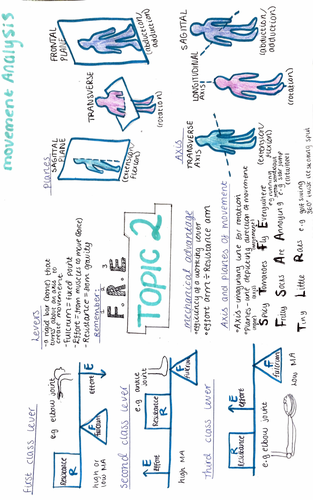 movement Analysis
Planes
FRONTAL
PLANE
(abduction/
adduction)
TRANSVERSE
(rotation)
SAGITTAL
PLANE
(extension/
flexion)
Axis
SAGITTAL
(abduction/
adduction)
LONGITUDINAL
AXIS
(rotation)
TRANSVERSE
AXIS
(extension/
flexion)
Levers
- a rigid bar
create movement
- Fulcrum = fixed point
- Effort = from muscles to move
- Resistance = from gravity
Remember
1 2 3
F.R.E
TOPIC 2
mechanical advantage
- efficiency of a working lever
- effort arm ÷ Resistance arm
Axis and planes of movement
- Axis - imaginary line for rotation
- Planes - line depicting direction of movement
Spicy Tomatoes Fly Everywhere
Filthy Socks Are Annoying e.g. star jump
Tiny Little Rats
First class lever
e.g elbow joint
Resistance
R
F
fulcrum
E
effort
high or
low MA
Second class lever
e.g. ankle
joint
E
effort
Resistance
R
F
fulcrum
high MA
Third class lever
Resistance
R
E
effort
F
fulcrum
e.g elbow joint
low MA